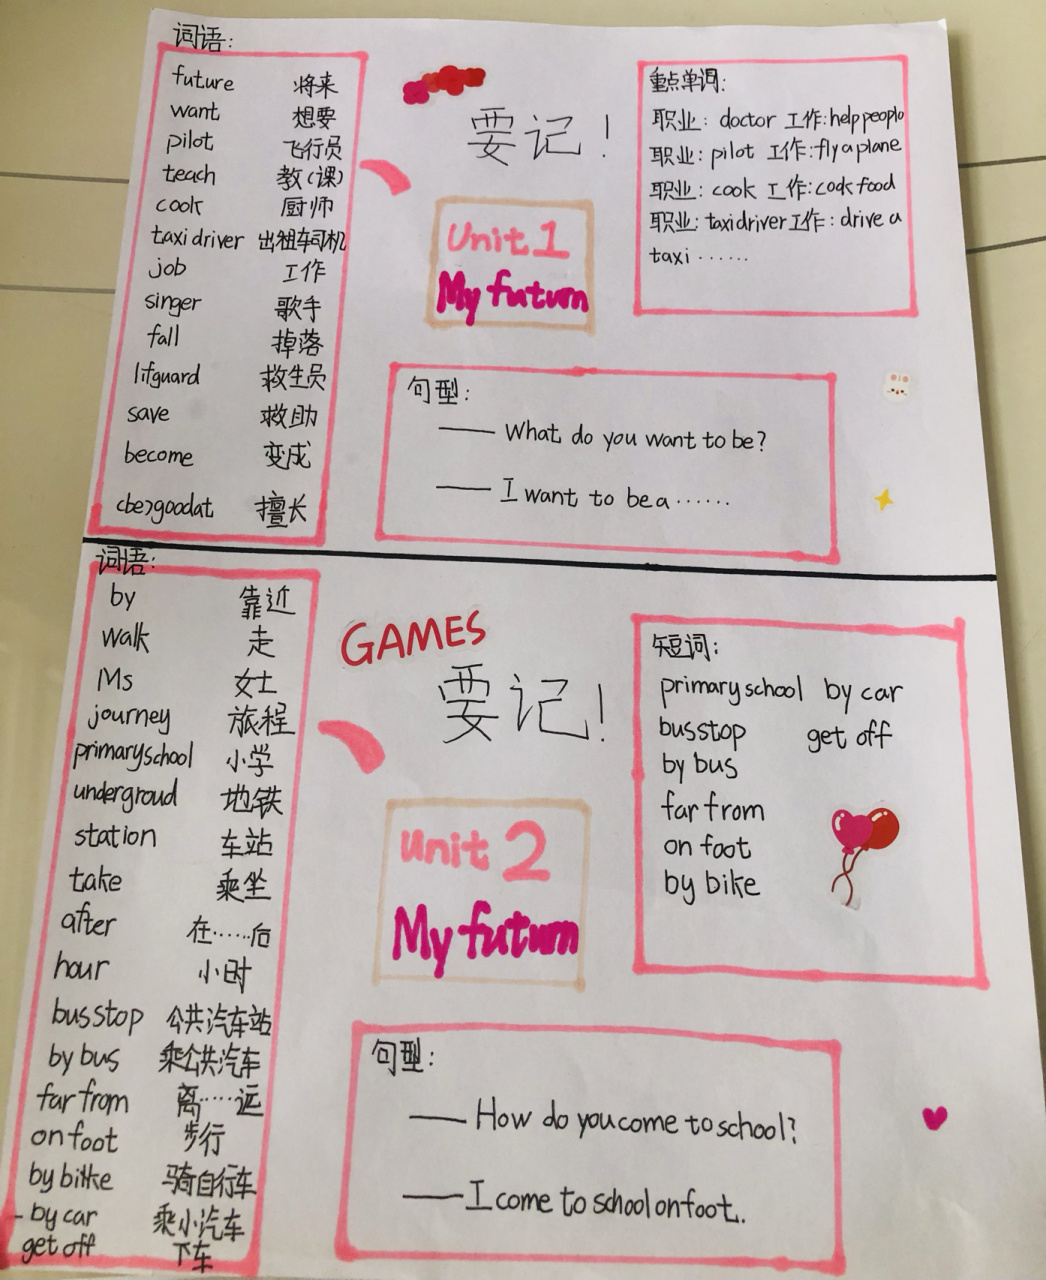 词语:
future 将来
want 想要
pilot 飞行员
teach 教(课)
cook 厨师
taxi driver 出租车司机
job 工作
singer 歌手
fall 掉落
lifguard 救生员
save 救助
become 变成
(be)goodat 擅长
要记!
Unit 1
My futurn
重点单词:
职业: doctor 工作:help people
职业: pilot 工作:fly a plane
职业: cook 工作:cook food
职业: taxi driver 工作: drive a
taxi ······
句型:
—— What do you want to be?
—— I want to be a ······
词语:
by 靠近
walk 走
Ms 女士
journey 旅程
primary school 小学
undergroud 地铁
station 车站
take 乘坐
after 在······后
hour 小时
bus stop 公共汽车站
by bus 乘公共汽车
far from 离·····远
on foot 步行
by bike 骑自行车
by car 乘小汽车
get off 下车
GAMES
要记!
Unit 2
My futurn
短词:
primary school by car
bus stop get off
by bus
far from
on foot
by bike
句型:
—— How do you come to school?
—— I come to school on foot.